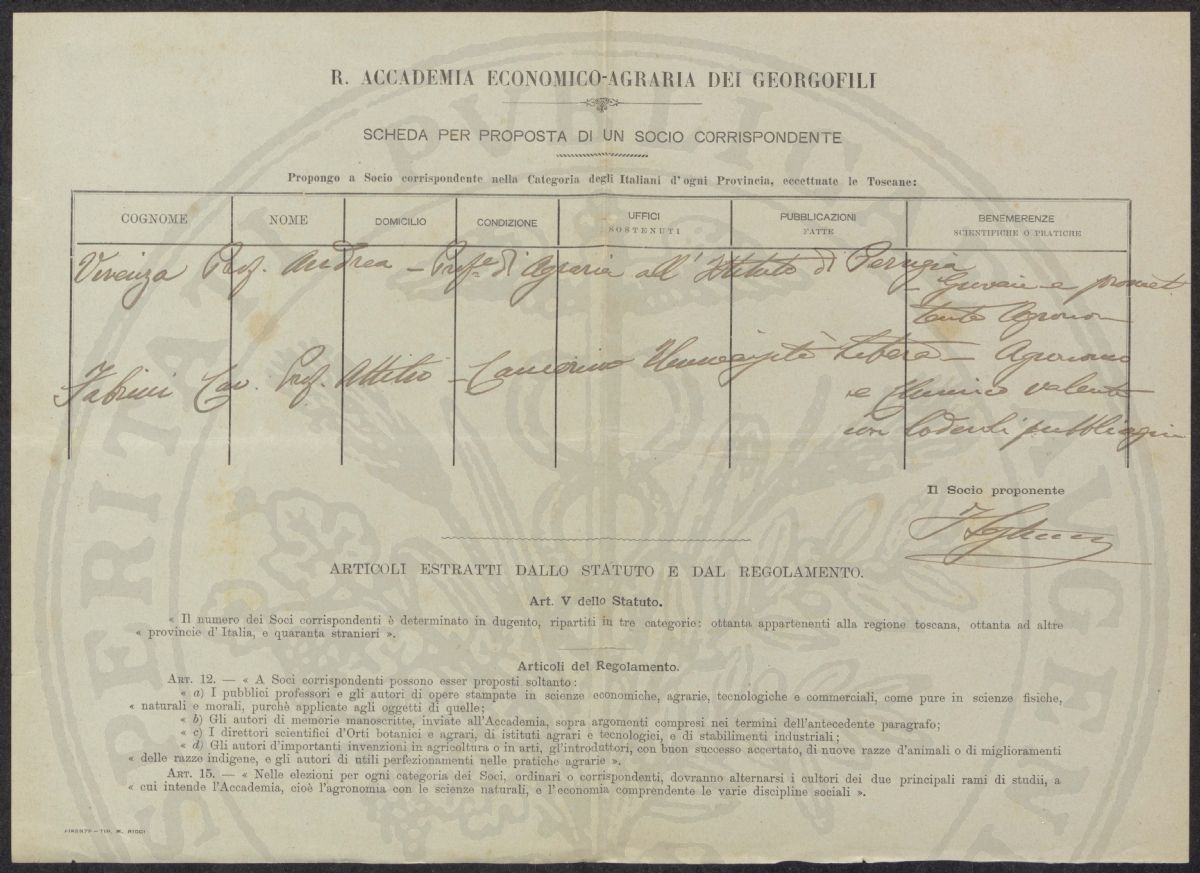 R. ACCADEMIA ECONOMICO-AGRARIA DEI GEORGOFILI
SCHEDA PER PROPOSTA DI UN SOCIO CORRISPONDENTE
Propongo a Socio corrispondente nella Categoria degli Italiani d'ogni Provincia, eccettuate le Toscane:
COGNOME NOME DOMICILIO CONDIZIONE UFFICI SOSTENUTI PUBBLICAZIONI FATTE BENEMERENZE SCIENTIFICHE O PRATICHE
Vivenza Prof. Andrea – Profre di Agraria all'Istituto di Perugia
– Giovane e promet
tente Agronomo
Fabrini Cav. Prof. Attilio – Camerino Università Libera – Agronomo
e Chimico valente
con lodevoli pubblicazioni
Il Socio proponente
ARTICOLI ESTRATTI DALLO STATUTO E DAL REGOLAMENTO.
Art. V dello Statuto.
« Il numero dei Soci corrispondenti è determinato in dugento, ripartiti in tre categorie: ottanta appartenenti alla regione toscana, ottanta ad altre
« provincie d'Italia, e quaranta stranieri ».
Articoli del Regolamento.
ART. 12. — « A Soci corrispondenti possono esser proposti soltanto:
« a) I pubblici professori e gli autori di opere stampate in scienze economiche, agrarie, tecnologiche e commerciali, come pure in scienze fisiche,
« naturali e morali, purchè applicate agli oggetti di quelle;
« b) Gli autori di memorie manoscritte, inviate all'Accademia, sopra argomenti compresi nei termini dell'antecedente paragrafo;
« c) I direttori scientifici d'Orti botanici e agrari, di istituti agrari e tecnologici, e di stabilimenti industriali;
« d) Gli autori d'importanti invenzioni in agricoltura o in arti, gl'introduttori, con buon successo accertato, di nuove razze d'animali o di miglioramenti
« delle razze indigene, e gli autori di utili perfezionamenti nelle pratiche agrarie ».
ART. 15. — « Nelle elezioni per ogni categoria dei Soci, ordinari o corrispondenti, dovranno alternarsi i cultori dei due principali rami di studii, a
« cui intende l'Accademia, cioè l'agronomia con le scienze naturali, e l'economia comprendente le varie discipline sociali ».
FIRENZE — TIP. M. RICCI